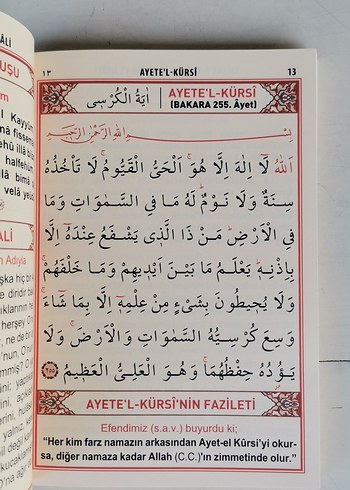 ÂLİ
UŞU
m
el Kayyûm
nâ fissema
ehû illâ bi
halfehüm
illâ bimâ
velâ yeû
ALİ
n Adıyla
şka hiç bir
diridir
'nun. O'n
١٣ AYETE'L-KÜRSÎ 13
اٰيَةُ الْكُرْسِى
AYETE'L-KÜRSÎ
(BAKARA 255. Âyet)
بِسْمِ اللهِ الرَّحْمٰنِ الرَّحِيمِ
اَللهُ لَا اِلٰهَ اِلَّا هُوَ ۚ اَلْحَىُّ الْقَيُّومُ ۚ لَا تَأْخُذُهُ
سِنَةٌ وَلَا نَوْمٌ ۜ لَهُ مَا فِى السَّمٰوَاتِ وَمَا
فِى الْاَرْضِ ۜ مَنْ ذَا الَّذِى يَشْفَعُ عِنْدَهُٓ اِلَّا
بِاِذْنِهٖ ۜ يَعْلَمُ مَا بَيْنَ اَيْدِيهِمْ وَمَا خَلْفَهُمْ ۚ
وَلَا يُحِيطُونَ بِشَىْءٍ مِنْ عِلْمِهٖٓ اِلَّا بِمَا شَٓاءَ ۚ
وَسِعَ كُرْسِيُّهُ السَّمٰوَاتِ وَالْاَرْضَ ۚ وَلَا
يَؤُ۫دُهُ حِفْظُهُمَا ۚ وَهُوَ الْعَلِىُّ الْعَظِيمُ ٢٥٥
AYETE'L-KÜRSÎ'NİN FAZİLETİ
Efendimiz (s.a.v.) buyurdu ki;
"Her kim farz namazın arkasından Ayet-el Kûrsi'yi okur-
sa, diğer namaza kadar Allah (C.C.)'ın zimmetinde olur."